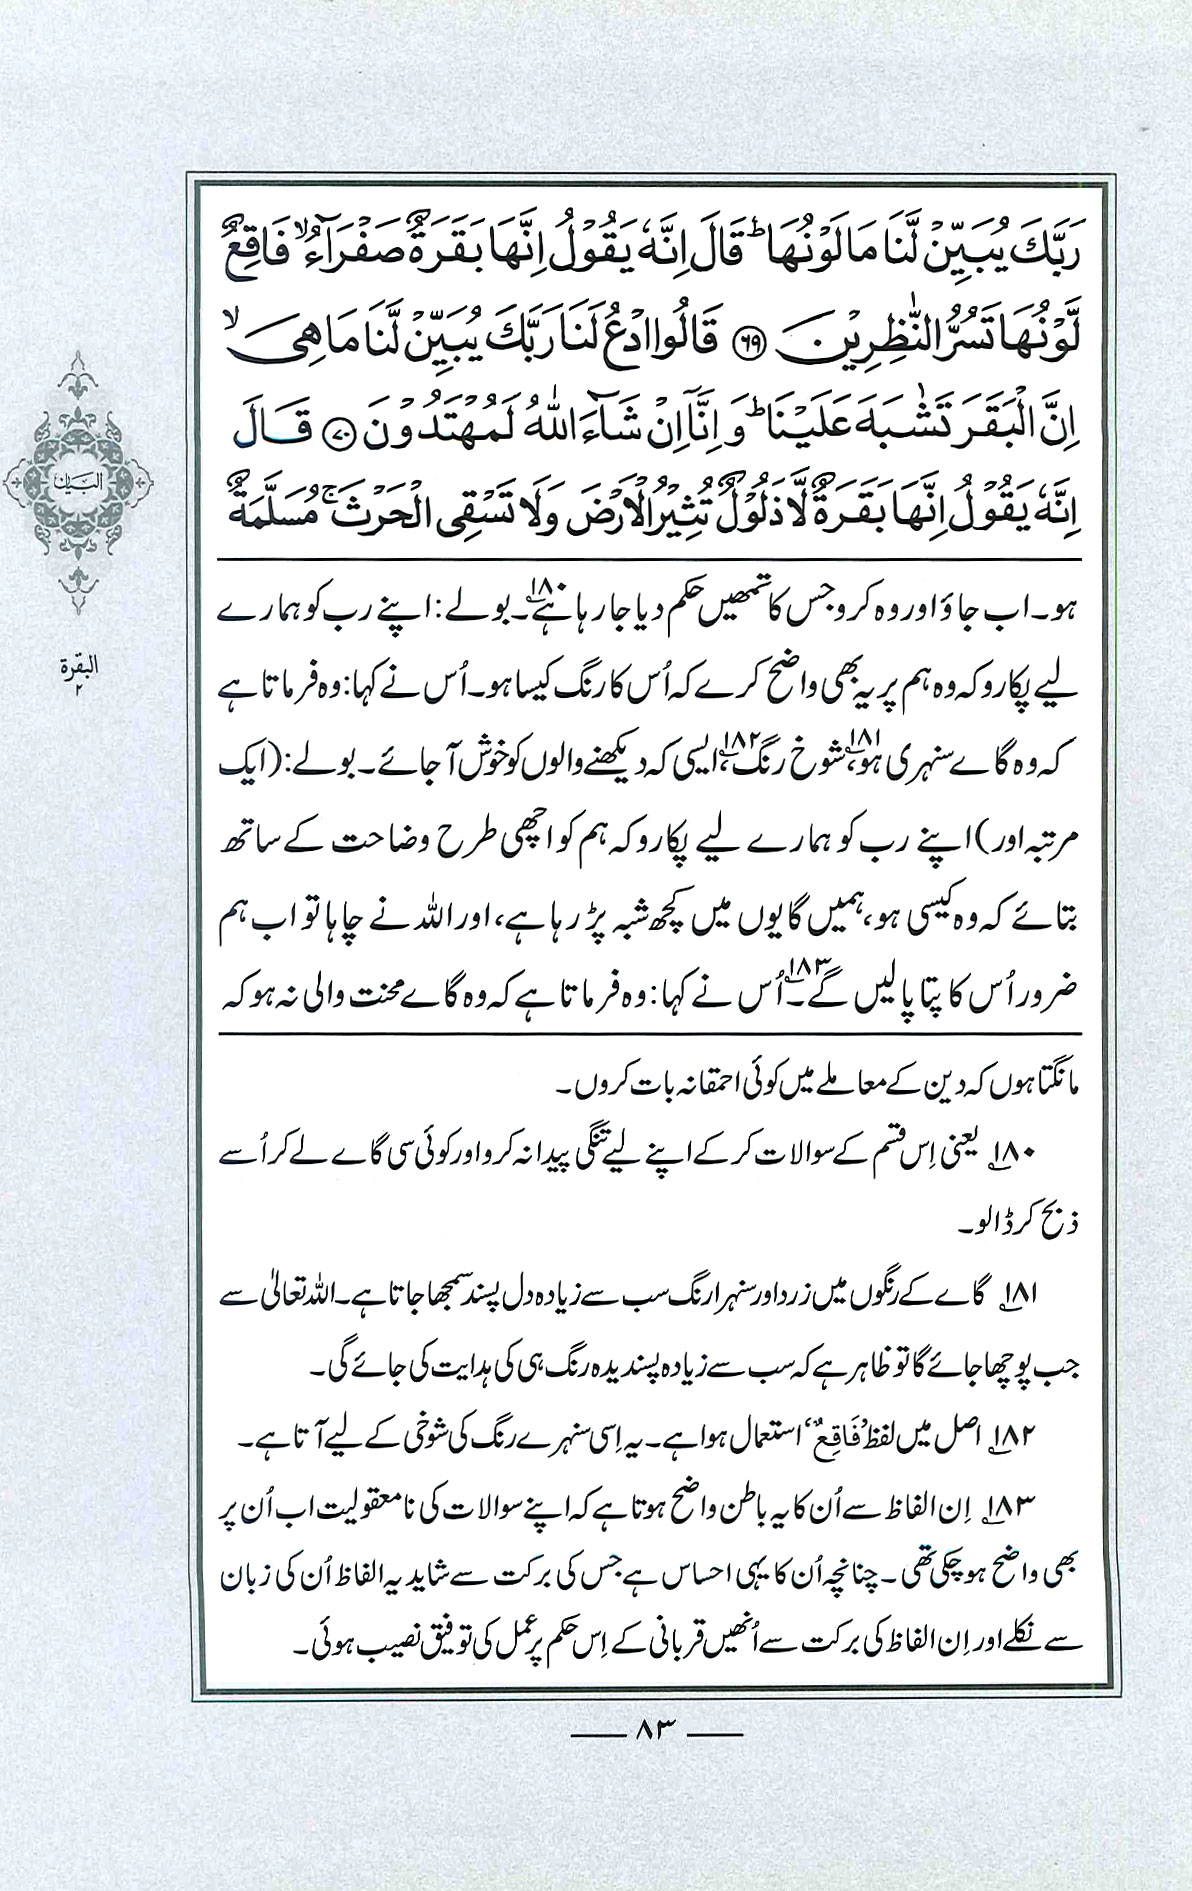 رَبَّكَ يُبَيِّنْ لَّنَا مَا لَوْنُهَا ؕ قَالَ اِنَّهٗ يَقُوْلُ اِنَّهَا بَقَرَةٌ صَفْرَآءُ ۙ فَاقِعٌ
لَّوْنُهَا تَسُرُّ النّٰظِرِيْنَ ﴿۶۹﴾ قَالُوا ادْعُ لَنَا رَبَّكَ يُبَيِّنْ لَّنَا مَا هِيَ ۙ
اِنَّ الْبَقَرَ تَشٰبَهَ عَلَيْنَا ؕ وَ اِنَّاۤ اِنْ شَآءَ اللّٰهُ لَمُهْتَدُوْنَ ﴿۷۰﴾ قَالَ
اِنَّهٗ يَقُوْلُ اِنَّهَا بَقَرَةٌ لَّا ذَلُوْلٌ تُثِيْرُ الْاَرْضَ وَلَا تَسْقِي الْحَرْثَ ۚ مُسَلَّمَةٌ
ہو۔ اب جاؤ اور وہ کرو جس کا تمھیں حکم دیا جا رہا ہے۱۸۰۔ بولے: اپنے رب کو ہمارے
لیے پکارو کہ وہ ہم پر یہ بھی واضح کرے کہ اُس کا رنگ کیسا ہو۔ اُس نے کہا: وہ فرماتا ہے
کہ وہ گاے سنہری ہو،۱۸۱ شوخ رنگ،۱۸۲ ایسی کہ دیکھنے والوں کو خوش آ جائے۔ بولے: (ایک
مرتبہ اور) اپنے رب کو ہمارے لیے پکارو کہ ہم کو اچھی طرح وضاحت کے ساتھ
بتائے کہ وہ کیسی ہو، ہمیں گایوں میں کچھ شبہ پڑ رہا ہے، اور اللہ نے چاہا تو اب ہم
ضرور اُس کا پتا پا لیں گے۔۱۸۳ اُس نے کہا: وہ فرماتا ہے کہ وہ گاے محنت والی نہ ہو کہ
مانگتا ہوں کہ دین کے معاملے میں کوئی احمقانہ بات کروں۔
۱۸۰ یعنی اِس قسم کے سوالات کر کے اپنے لیے تنگی پیدا نہ کرو اور کوئی سی گاے لے کر اُسے
ذبح کر ڈالو۔
۱۸۱ گاے کے رنگوں میں زرد اور سنہرا رنگ سب سے زیادہ دل پسند سمجھا جاتا ہے۔ اللہ تعالیٰ سے
جب پوچھا جائے گا تو ظاہر ہے کہ سب سے زیادہ پسندیدہ رنگ ہی کی ہدایت کی جائے گی۔
۱۸۲ اصل میں لفظ ’فَاقِعٌ‘ استعمال ہوا ہے۔ یہ اِسی سنہرے رنگ کی شوخی کے لیے آتا ہے۔
۱۸۳ اِن الفاظ سے اُن کا یہ باطن واضح ہوتا ہے کہ اپنے سوالات کی نامعقولیت اب اُن پر
بھی واضح ہو چکی تھی۔ چنانچہ اُن کا یہی احساس ہے جس کی برکت سے شاید یہ الفاظ اُن کی زبان
سے نکلے اور اِن الفاظ کی برکت سے اُنھیں قربانی کے اِس حکم پر عمل کی توفیق نصیب ہوئی۔
البیان
البقرة
۲
۸۳